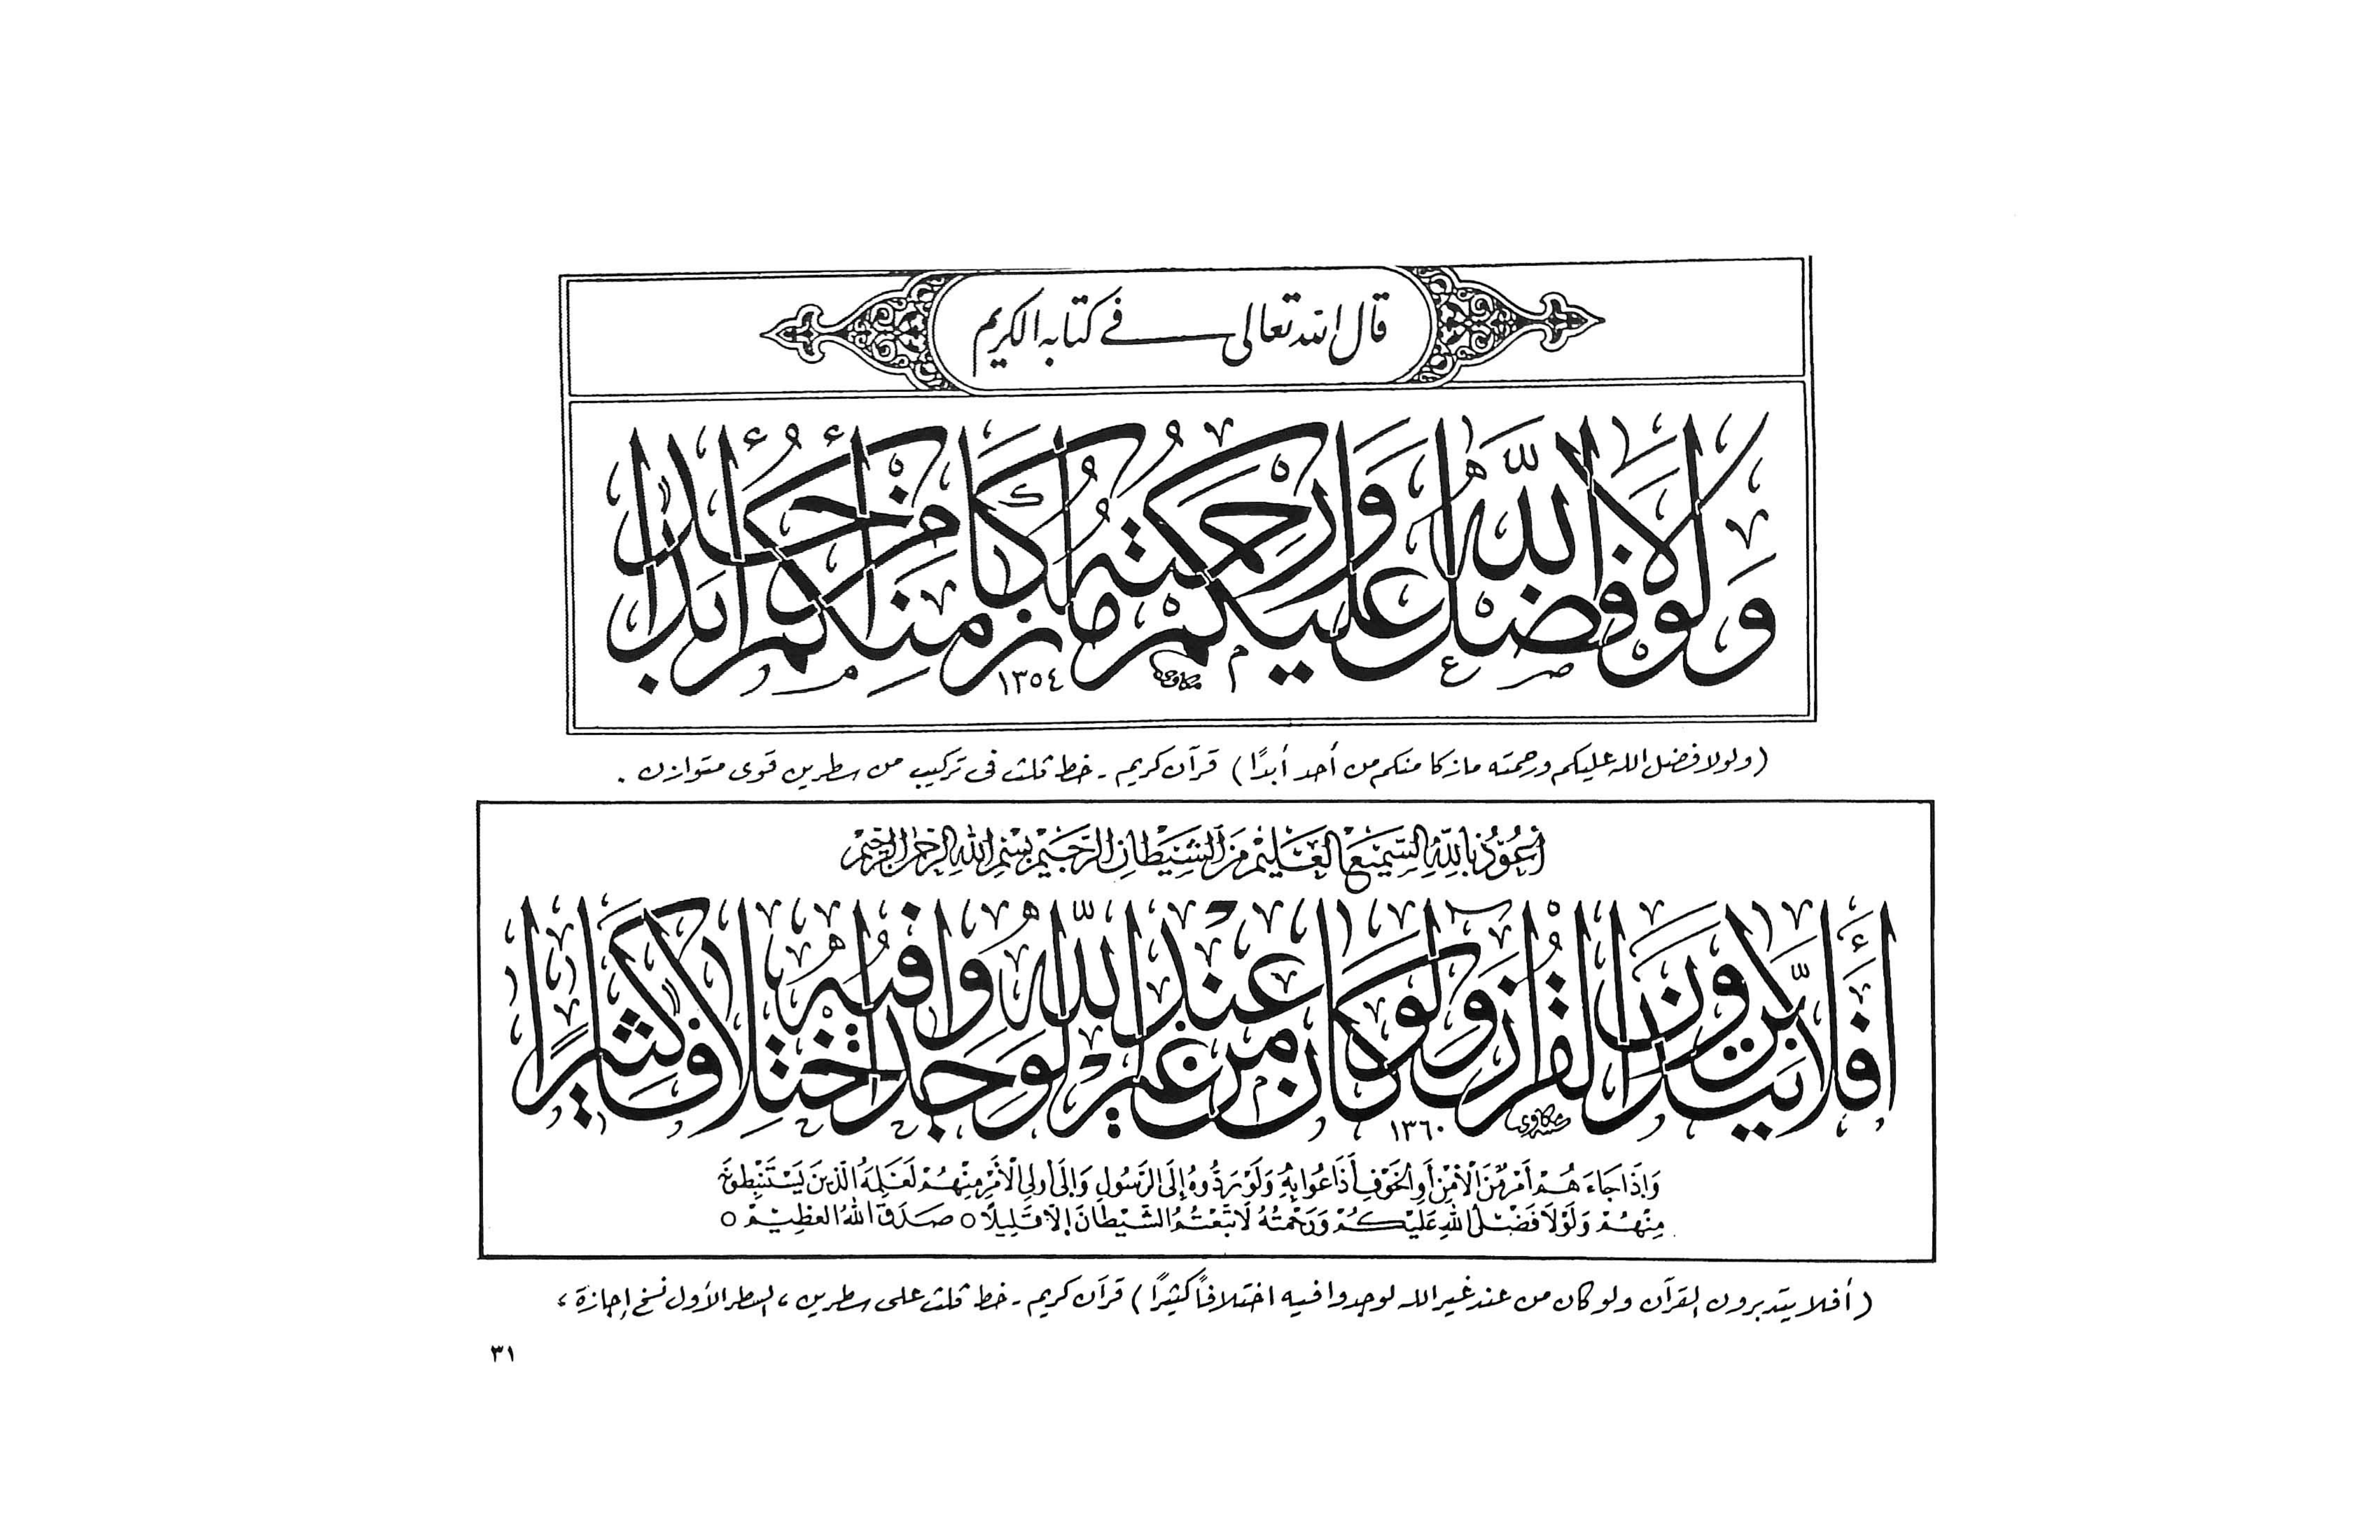 قال الله تعالى في كتابه الكريم
ولولا فضل الله عليكم ورحمته ما زكا منكم من أحد أبدا
١٣٥٤
(ولولا فضل الله عليكم ورحمته مازكا منكم من أحد أبدًا) قرآن كريم - خط ثلث فى تركيب من سطرين قوى متوازن .
أَعُوذُ بِاللهِ السَّمِيعِ العَلِيمِ مِنَ الشَّيْطَانِ الرَّجِيمِ بِسْمِ اللهِ الرَّحْمٰنِ الرَّحِيمِ
أَفَلَا يَتَدَبَّرُونَ الْقُرْآنَ وَلَوْ كَانَ مِنْ عِنْدِ غَيْرِ اللَّهِ لَوَجَدُوا فِيهِ اخْتِلَافًا كَثِيرًا
١٣٦٠
وَإِذَا جَاءَهُمْ أَمْرٌ مِنَ الْأَمْنِ أَوِ الْخَوْفِ أَذَاعُوا بِهِ وَلَوْ رَدُّوهُ إِلَى الرَّسُولِ وَإِلَى أُولِي الْأَمْرِ مِنْهُمْ لَعَلِمَهُ الَّذِينَ يَسْتَنْبِطُونَهُ
مِنْهُمْ وَلَوْلَا فَضْلُ اللهِ عَلَيْكُمْ وَرَحْمَتُهُ لَاتَّبَعْتُمُ الشَّيْطَانَ إِلَّا قَلِيلًا ○ صَدَقَ اللهُ العَظِيمْ ○
(أفلا يتدبرون القرآن ولو كان من عند غير الله لوجدوا فيه اختلافاً كثيرًا) قرآن كريم - خط ثلث على سطرين ، السطر الأول نسخ إجازة ،
٣١